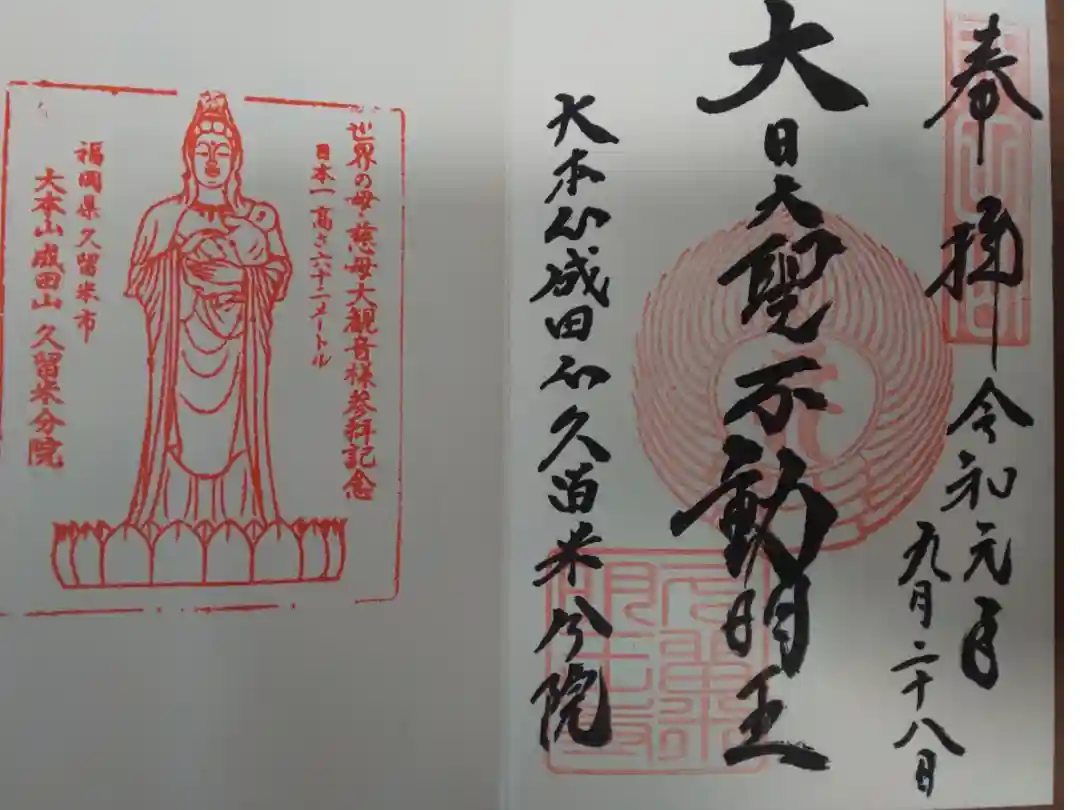 奉拝
令和元年
九月二十八日
大日大聖不動明王
大本山成田山久留米分院
世界の母・慈母大観音様参拝記念
日本一高さ六十二メートル
福岡県久留米市
大本山成田山久留米分院